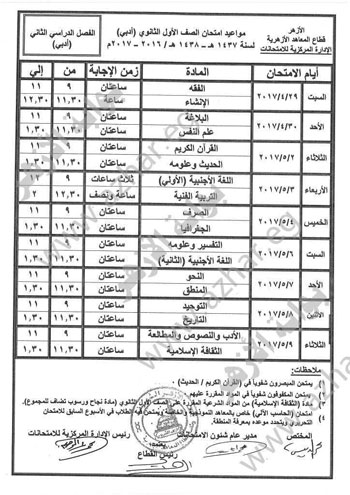 الأزهر
قطاع المعاهد الأزهرية
الإدارة المركزية للامتحانات
مواعيد امتحان الصف الأول الثانوي (أدبي)
لسنة ١٤٣٧ هـ - ١٤٣٨ هـ / ٢٠١٦ - ٢٠١٧م
الفصل الدراسي الثاني
(أدبي)
أيام الامتحان المادة زمن الإجابة من إلى
السبت ٢٠١٧/٤/٢٩ الفقه ساعتان ٩ ١١
الإنشاء ساعة ١١,٣٠ ١٢,٣٠
الأحد ٢٠١٧/٤/٣٠ البلاغة ساعتان ٩ ١١
علم النفس ساعتان ١١,٣٠ ١,٣٠
الثلاثاء ٢٠١٧/٥/٢ القرآن الكريم ساعتان ٩ ١١
الحديث وعلومه ساعتان ١١,٣٠ ١,٣٠
الأربعاء ٢٠١٧/٥/٣ اللغة الأجنبية (الأولى) ثلاث ساعات ٩ ١٢
التربية الفنية ساعة ونصف ١٢,٣٠ ٢
الخميس ٢٠١٧/٥/٤ الصرف ساعتان ٩ ١١
الجغرافيا ساعتان ١١,٣٠ ١,٣٠
السبت ٢٠١٧/٥/٦ التفسير وعلومه ساعتان ٩ ١١
اللغة الأجنبية (الثانية) ساعتان ١١,٣٠ ١,٣٠
الأحد ٢٠١٧/٥/٧ النحو ساعتان ٩ ١١
المنطق ساعتان ١١,٣٠ ١,٣٠
الاثنين ٢٠١٧/٥/٨ التوحيد ساعتان ٩ ١١
التاريخ ساعتان ١١,٣٠ ١,٣٠
الثلاثاء ٢٠١٧/٥/٩ الأدب والنصوص والمطالعة ساعتان ٩ ١١
الثقافة الإسلامية ساعتان ١١,٣٠ ١,٣٠
ملاحظات:
يمتحن المبصرون شفوياً في (القرآن الكريم / الحديث)
يمتحن المكفوفون شفوياً في المواد المقررة عليهم
مادة (الثقافة الإسلامية) من المواد الشرعية المقررة على الصف الأول الثانوي (مادة نجاح ورسوب تضاف للمجموع).
امتحان (الحاسب الآلي) خاص بالمعاهد النموذجية والخاصة ويمتحن فيه الطلاب في الأسبوع السابق للامتحان
التحريري ويتحدد موعده بمعرفة المنطقة.
المختص
مدير عام شئون الامتحانات
رئيس الإدارة المركزية للامتحانات
رئيس القطاع